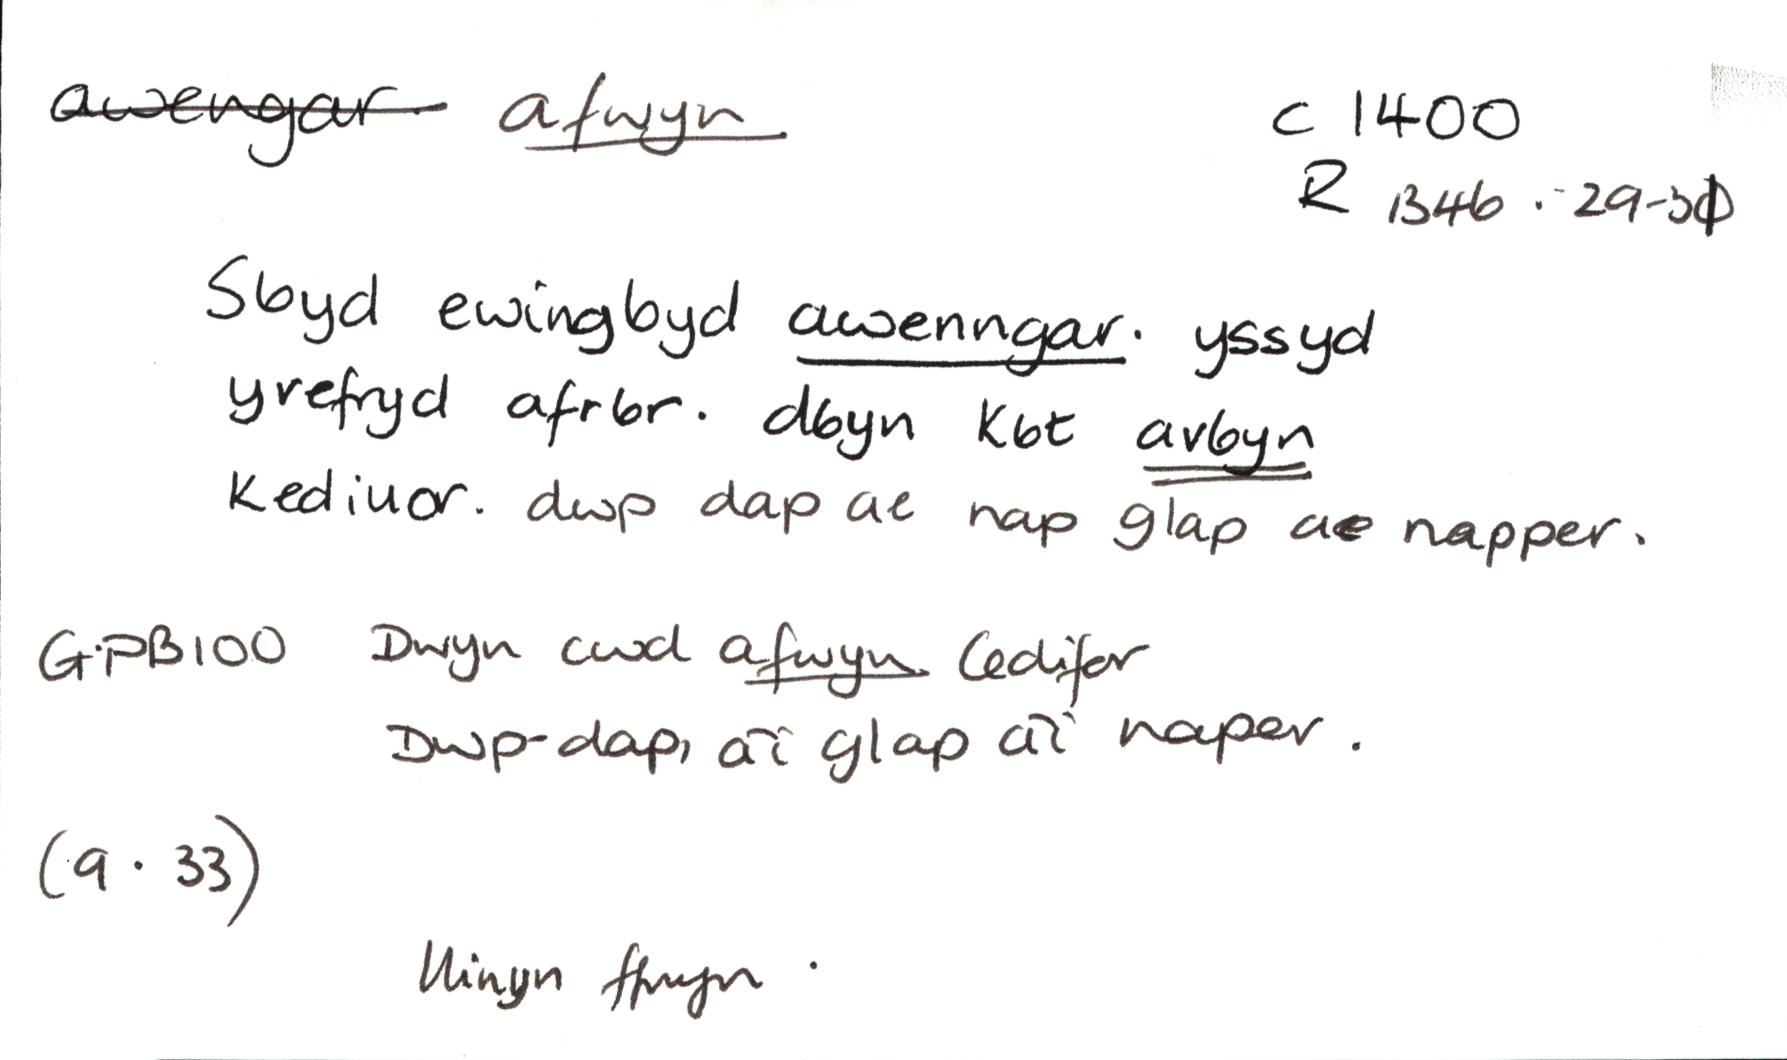 awengar afwyn
c 1400
R 1346 . 29-30
Sỽyd ewingỽyd awenngar. yssyd
yrefryd afrỽr. dỽyn kỽt avỽyn
kediuor. dwp dap ae nap glap ae napper.
G.PB100 Dwyn cwd afwyn Cedifor
Dwp-dap, a'i glap a'i naper.
(9.33)
llinyn ffrwyn .